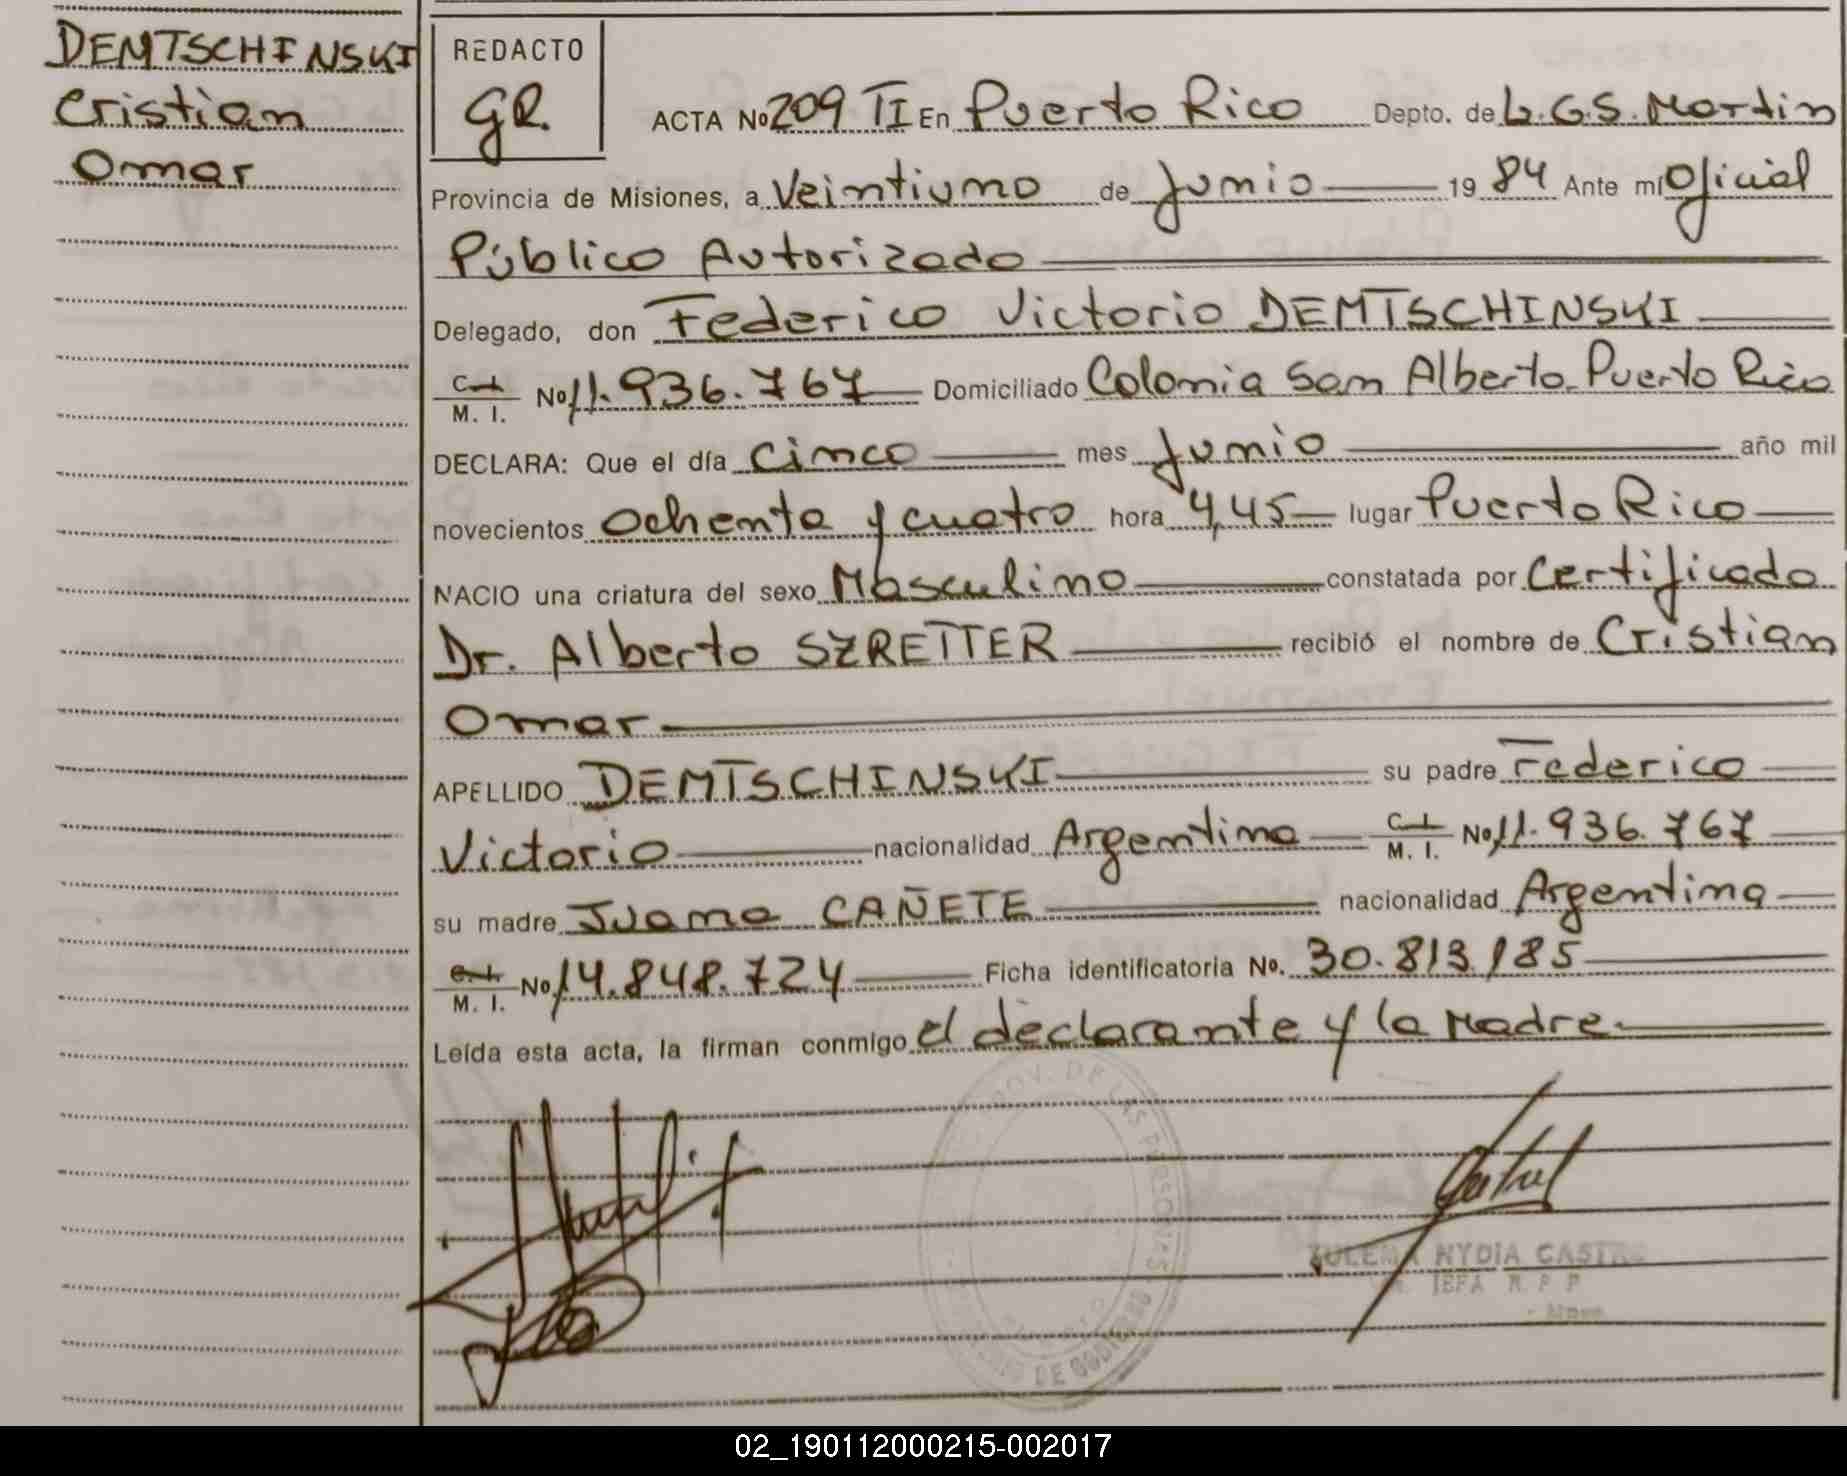 DEMTSCHINSKI
Cristian
Omar
REDACTO
GR.
ACTA Nº 209 TI En Puerto Rico Depto. de L.G.S. Martin
Provincia de Misiones, a Veintiuno de Junio 19 84 Ante mí Oficial
Público Autorizado
Delegado, don Federico Victorio DEMTSCHINSKI
C. I. M. I. Nº 11.936.767 Domiciliado Colonia San Alberto-Puerto Rico
DECLARA: Que el día cinco mes Junio año mil
novecientos ochenta y cuatro hora 4,45 lugar Puerto Rico
NACIO una criatura del sexo Masculino constatada por Certificado
Dr. Alberto SZRETTER recibió el nombre de Cristian
Omar
APELLIDO DEMTSCHINSKI su padre Federico
Victorio nacionalidad Argentina C. I. M. I. Nº 11.936.767
su madre Juana CAÑETE nacionalidad Argentina
C. I. M. I. Nº 14.848.724 Ficha identificatoria Nº. 30.813.185
Leída esta acta, la firman conmigo el declarante y la Madre.
ZULEMA NYDIA CASTRO
JEFA R. P. P
02_190112000215-002017